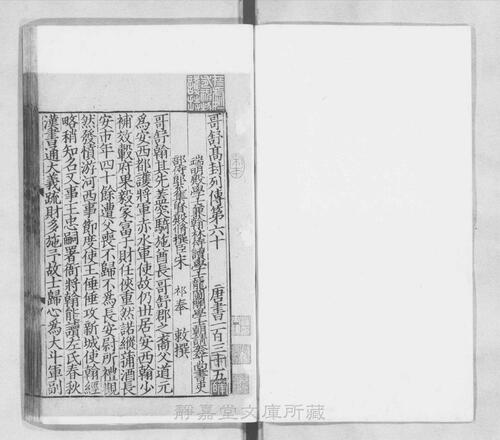 哥舒高封列傳第六十　唐書一百三十五
端明殿學士兼翰林侍讀學士龍圖閣學士朝請大夫守尚書吏
部侍郎充集賢殿脩撰臣宋　祁奉　敕撰
哥舒翰其先蓋突騎施酋長哥舒部之裔父道元
為安西都護將軍赤水軍使故仍世居安西翰少
補效轂府果毅家富于財任俠重然諾縱蒱酒長
安市年四十餘遭父喪不歸不為長安尉所禮慨
然發憤游河西事節度使王倕倕攻新城使翰經
略稍知名又事王忠嗣署衙將翰能讀左氏春秋
漢書通大義疏財多施予故士歸心為大斗軍副
靜嘉堂文庫所藏